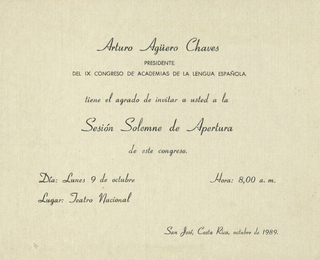 Arturo Agüero Chaves
PRESIDENTE
DEL IX CONGRESO DE ACADEMIAS DE LA LENGUA ESPAÑOLA
tiene el agrado de invitar a usted a la
Sesión Solemne de Apertura
de este congreso.
Día: Lunes 9 de octubre Hora: 8,00 a. m.
Lugar: Teatro Nacional
San José, Costa Rica, octubre de 1989.